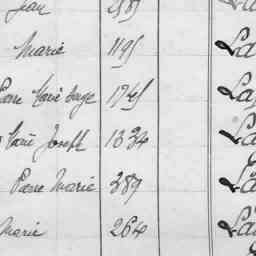 Jean
Marie 1195 La
Pierre Marie Serge 1745 La
Marie Joseph 1334 La
Pierre Marie 389 La
Marie 264 La